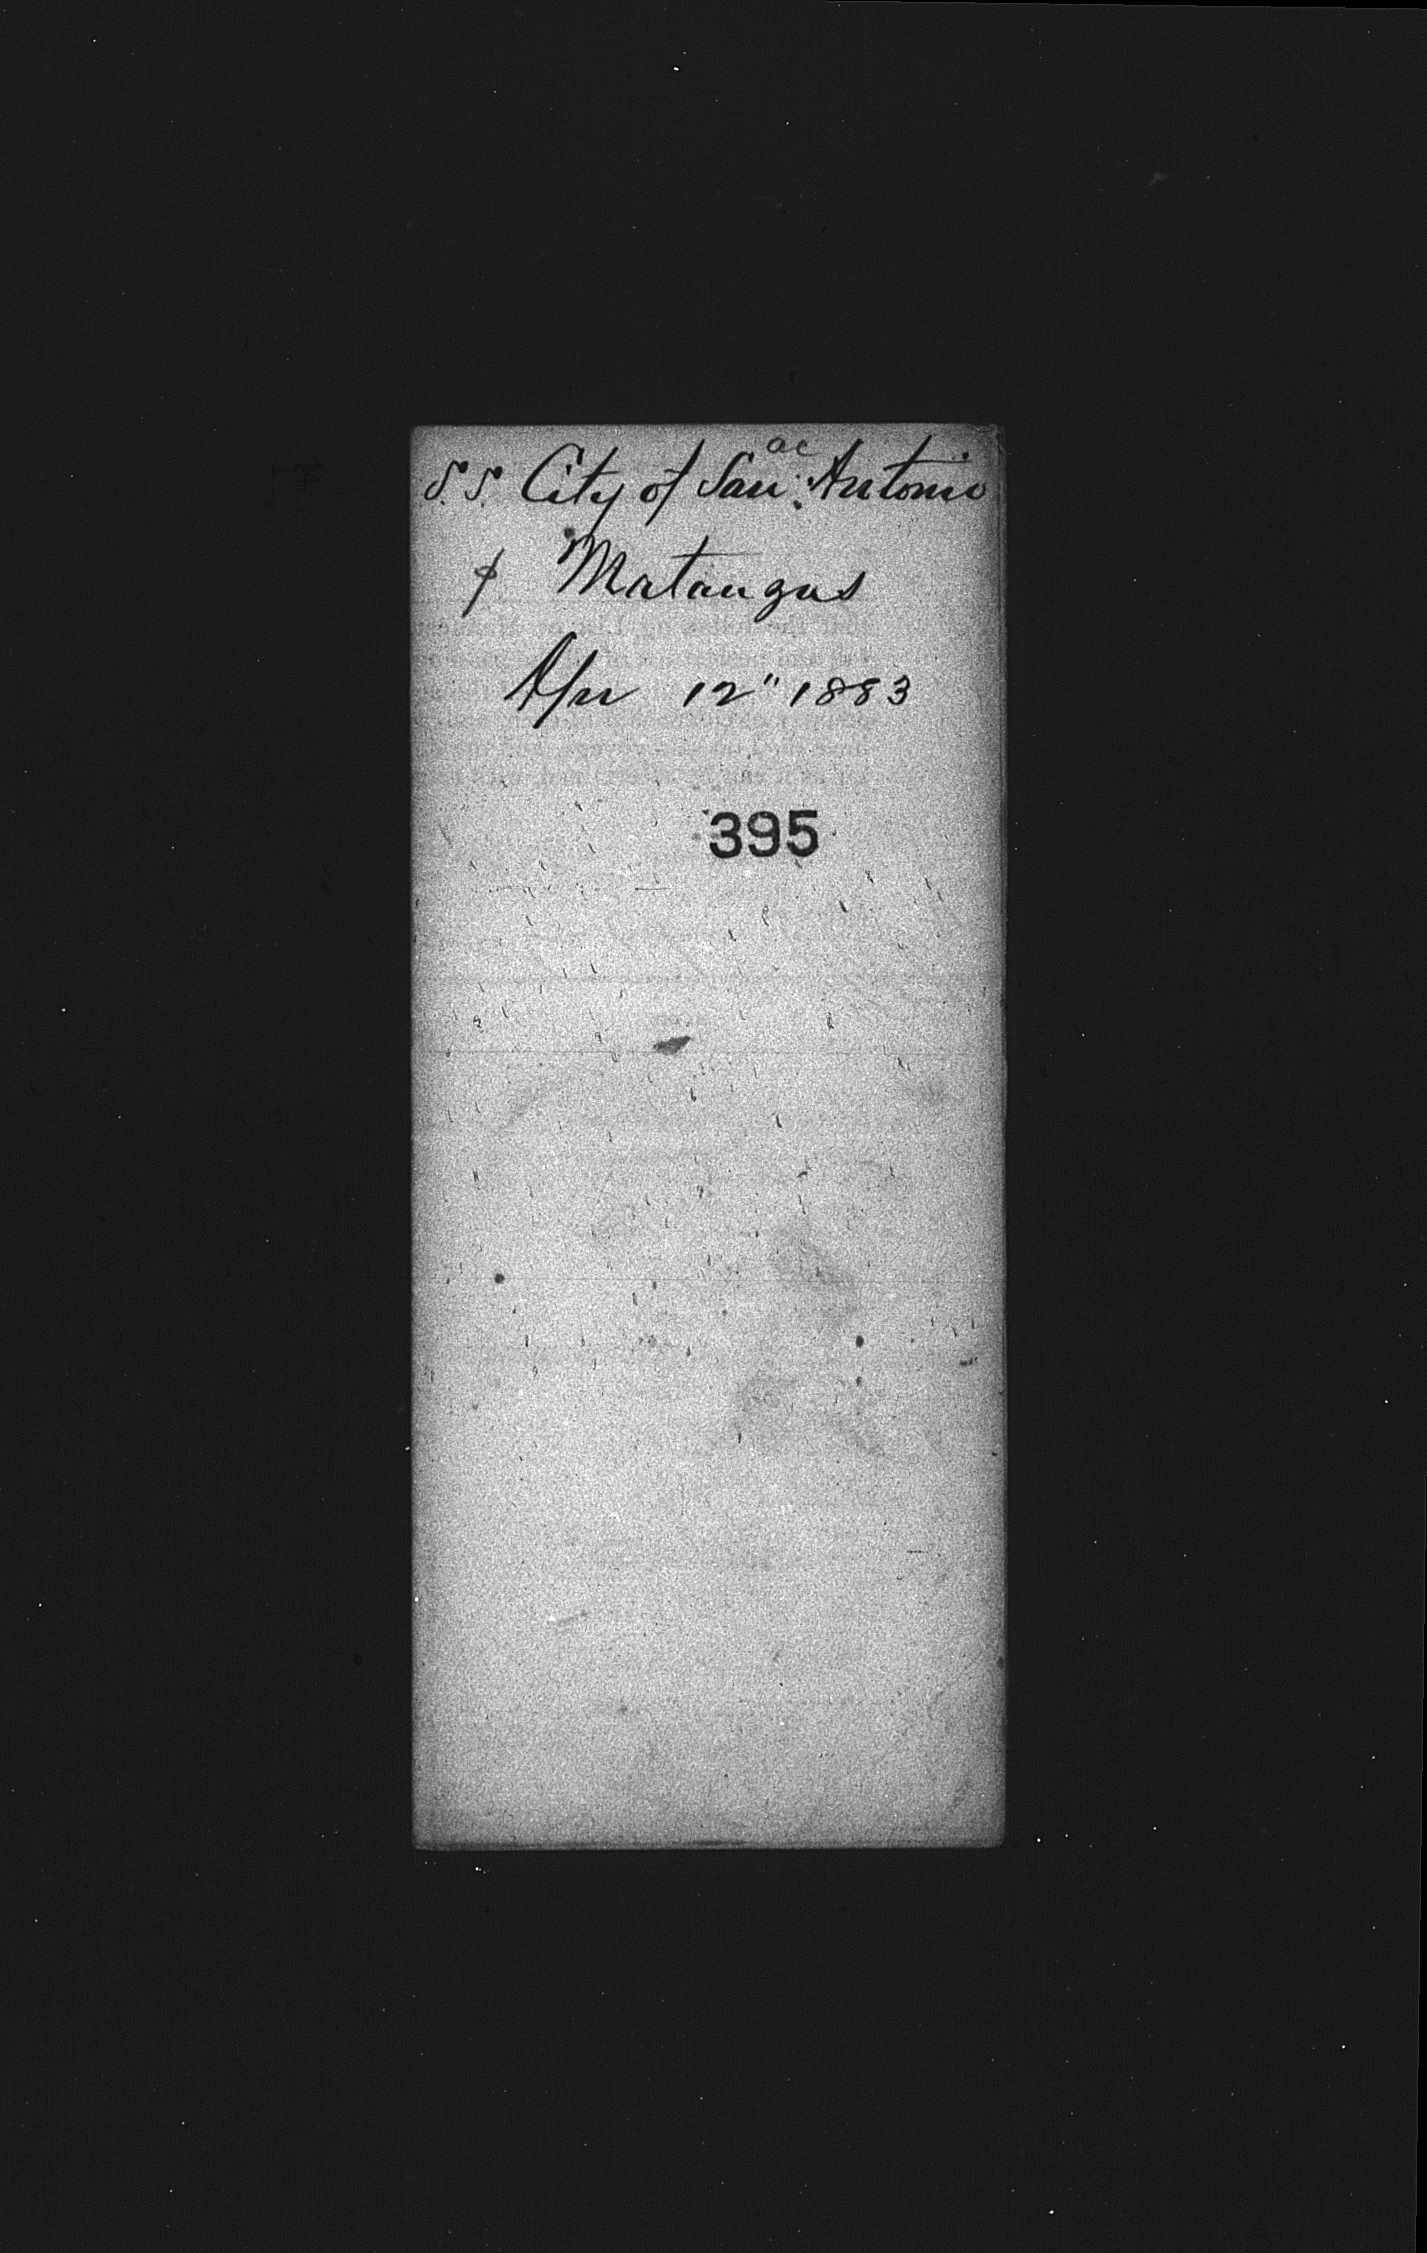 ac
S.S. City of San Antonio
f Matangas
Apr 12" 1883
395